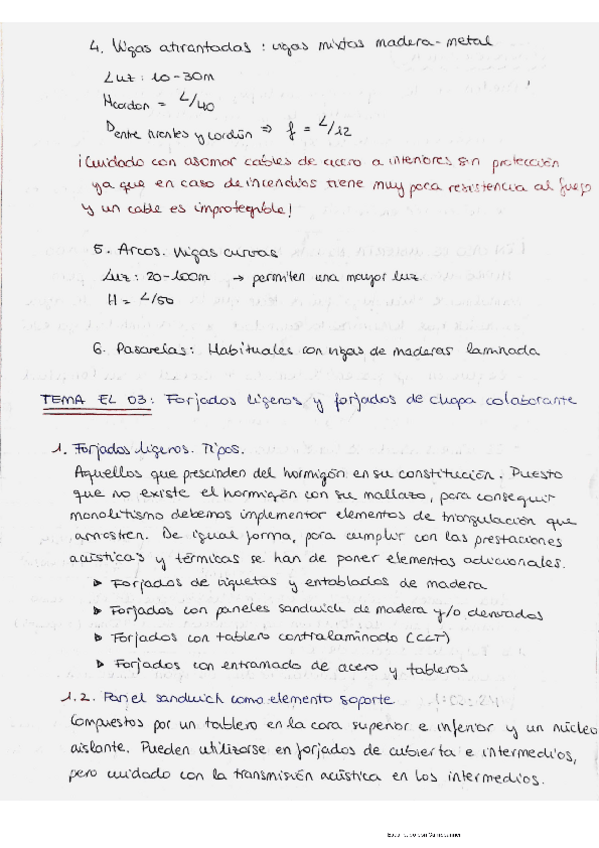 4. Vigas atirantadas : vigas mixtas madera-metal
Luz: 10-30m
Hcordon = L/40
Dentre tirantes y cordón ⇒ f = L/12
¡Cuidado con asomar cables de acero a interiores sin protección
ya que en caso de incendios tiene muy poca resistencia al fuego
y un cable es improtegible!
5. Arcos. Vigas curvas
Luz: 20-100m → permiten una mayor luz.
H = L/50
6. Pasarelas: Habituales con vigas de maderas laminada
TEMA EL 03: Forjados ligeros y forjados de chapa colaborante
1. Forjados ligeros. Tipos.
Aquellos que prescinden del hormigón en su constitución. Puesto
que no existe el hormigón con su mallazo, para conseguir
monolitismo debemos implementar elementos de triangulación que
arriostren. De igual forma, para cumplir con las prestaciones
acústicas y térmicas se han de poner elementos adicionales.
▷ Forjados de viguetas y entablados de madera
▷ Forjados con paneles sandwich de madera y/o derivados
▷ Forjados con tablero contralaminado (CLT)
▷ Forjados con entramado de acero y tableros
1.2. Panel sandwich como elemento soporte
Compuestos por un tablero en la cara superior e inferior y un núcleo
aislante. Pueden utilizarse en forjados de cubierta e intermedios,
pero cuidado con la transmisión acústica en los intermedios.